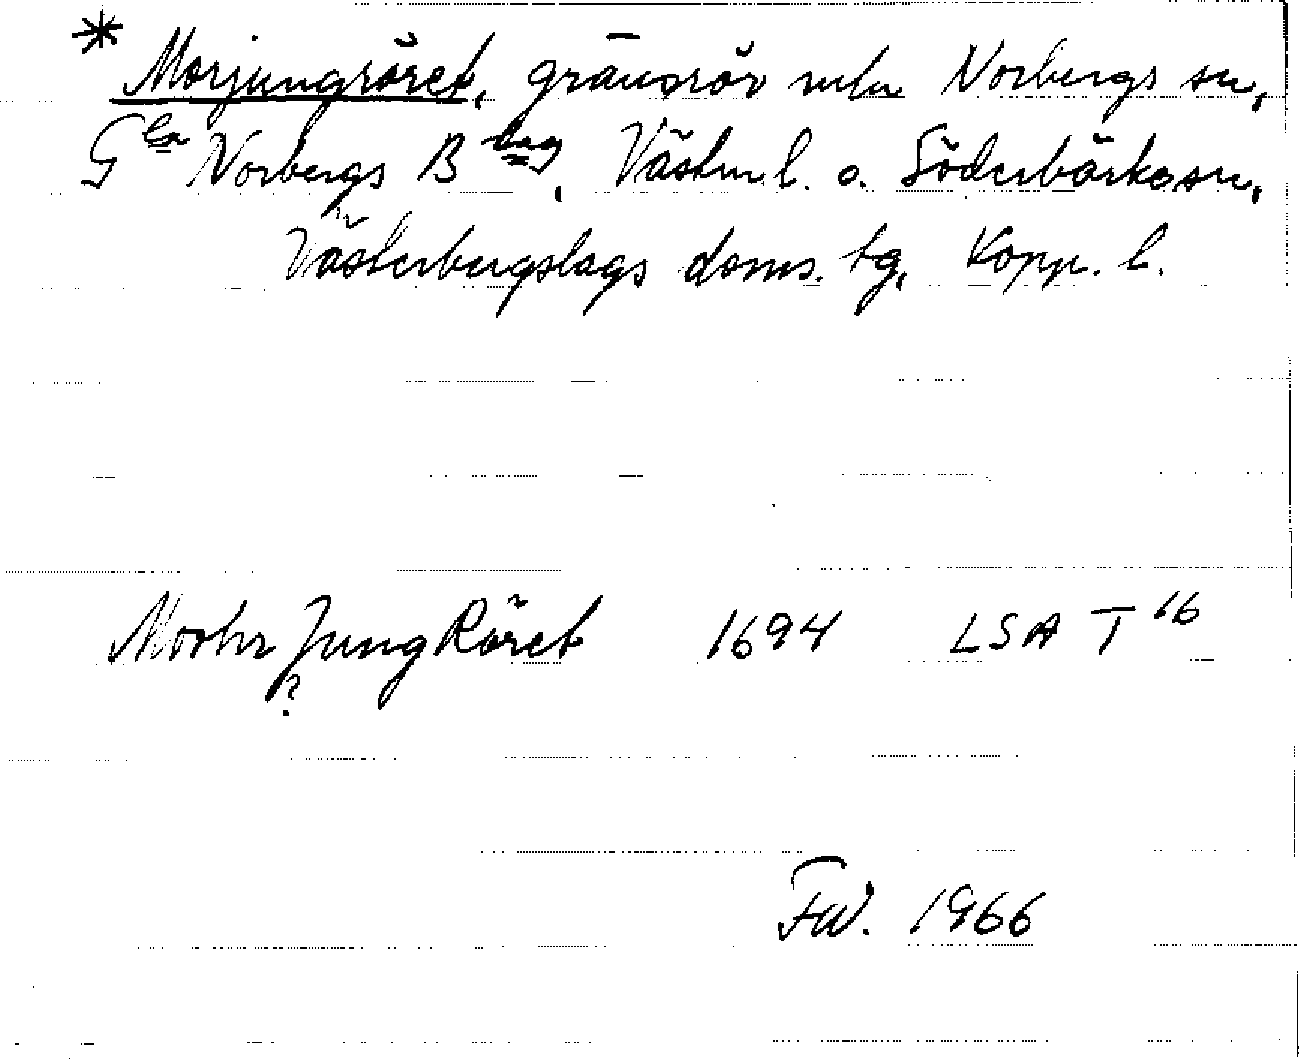 * Morjungröret, gränsrör mln Norbergs sn,
Gla Norbergs Blag, Västm. l. o. Söderbärke sn,
Västerbergslags doms. tg, Kopp. l.
Morhr Jung Röret 1694 LSA T 16
?
FW. 1966